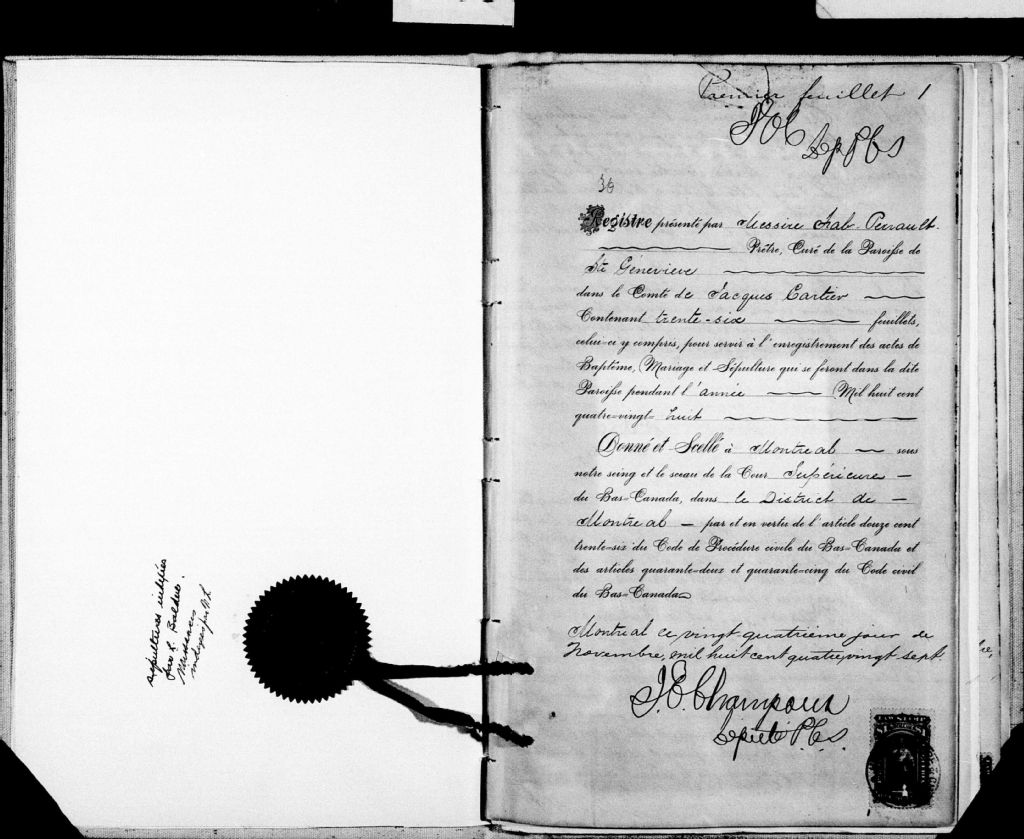 sépultures indexées
Jos. L. Balduc.
Naissances
indexées par
Premier feuillet 1
Dep P C S
36
Registre présenté par Messire Frab. Perrault.
Prêtre, Curé de la Paroisse de
Ste Geneviève
dans le Comté de Jacques Cartier
Contenant trente-six feuillets,
celui-ci y compris, pour servir à l'enregistrement des actes de
Baptême, Mariage et Sépulture qui se feront dans la dite
Paroisse pendant l'année Mil huit cent
quatre-vingt-huit
Donné et Scellé à Montreal sous
notre seing et le sceau de la Cour Supérieure
du Bas-Canada, dans le District de
Montreal par et en vertu de l'article douze cent
trente-six du Code de Procédure civile du Bas-Canada et
des articles quarante-deux et quarante-cinq du Code civil
du Bas-Canada
Montreal ce vingt quatrième jour de
Novembre, mil huit cent quatre-vingt sept.
J. E. Champoux
Député P. C. S.